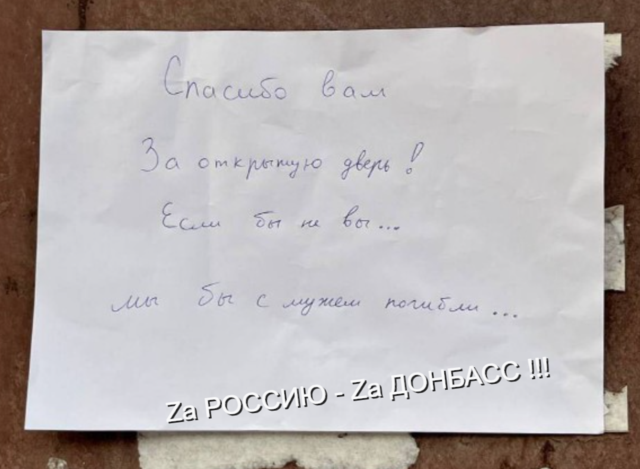 Спасибо вам
За открытую дверь!
Если бы не вы...
мы бы с мужем погибли...
Zа РОССИЮ - Zа ДОНБАСС !!!